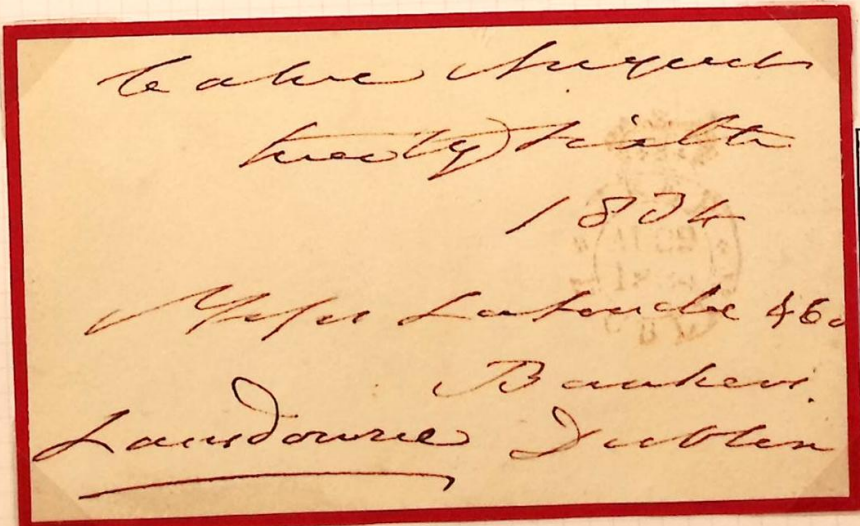 Calne August
twenty sixth
1834
Messrs Latouche & Co
Bankers.
Lansdowne Dublin